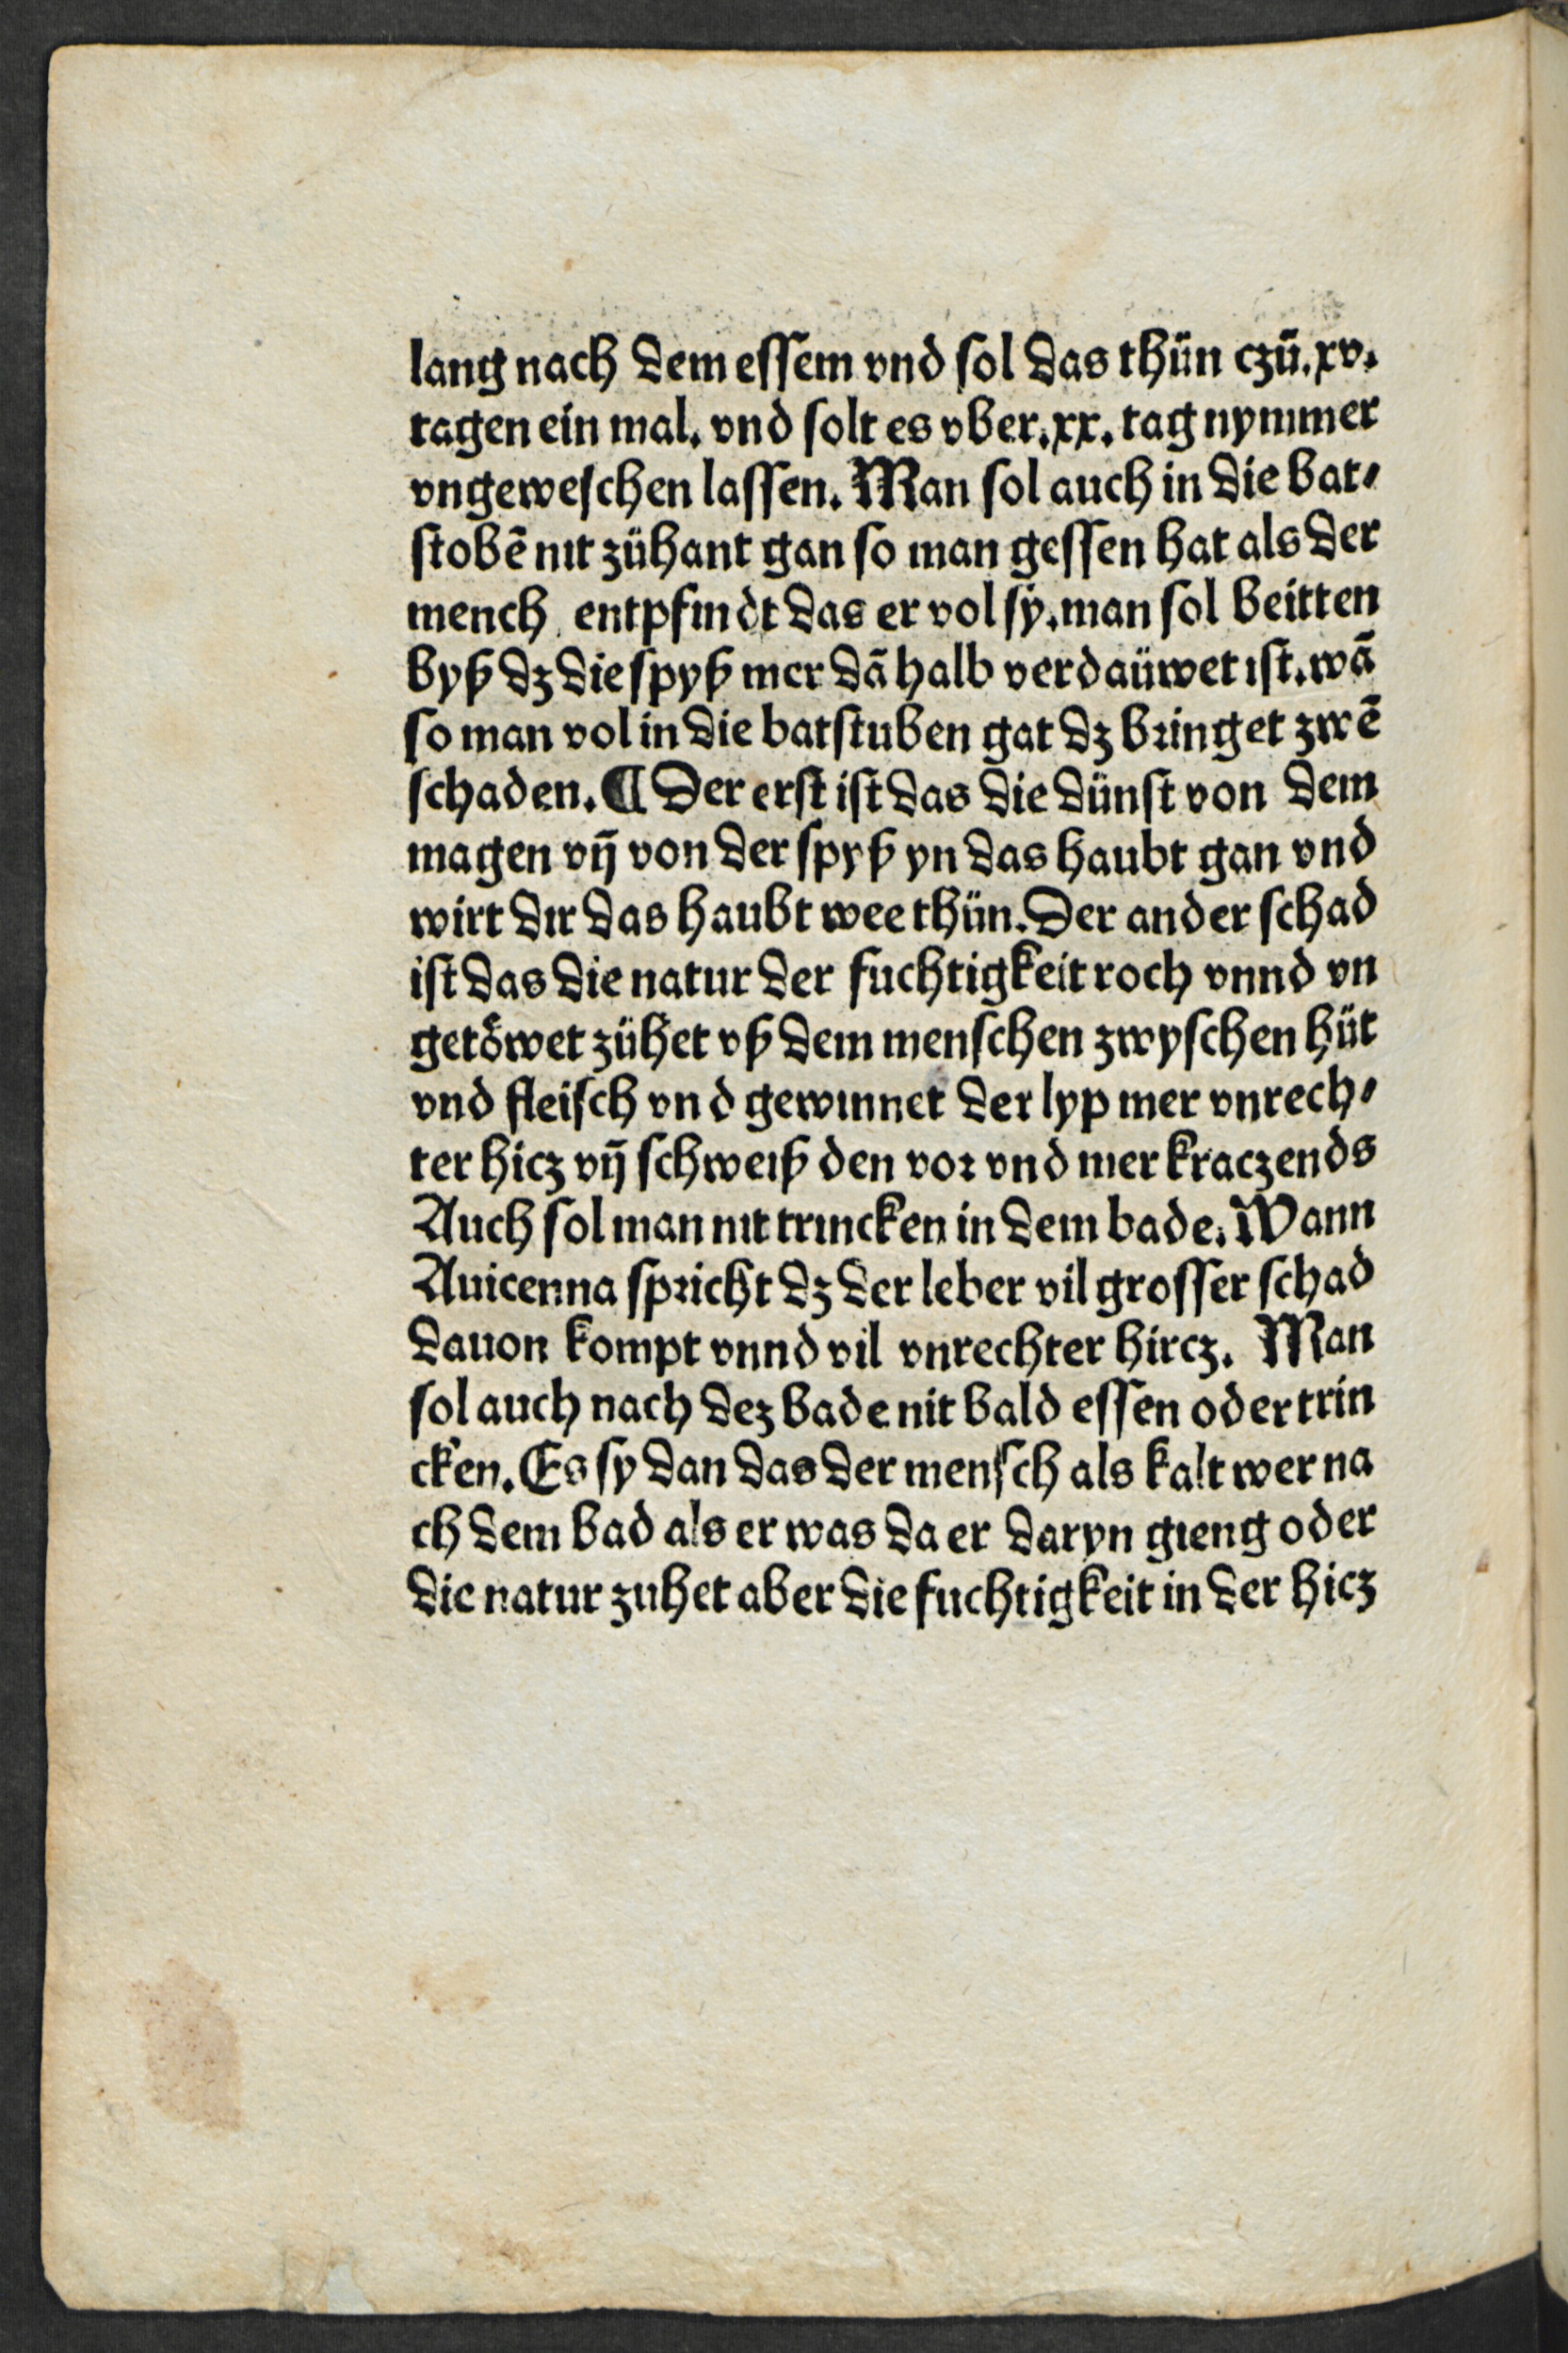 lang nach dem essem vnd sol das thün czů. xv.
tagen ein mal. vnd solt es vber. xx. tag nymmer
vngeweschen lassen. Man sol auch in die bat⸗
stobē nit zühant gan so man gessen hat als der
mench entpfindt das er vol sy. man sol beitten
byß dz die spyß mer dā halb verdaüwet ist. wā
so man vol in die batstuben gat dz bringet zwē
schaden. ¶ Der erst ist das die dünst von dem
magen vn̄ von der spyß yn das haubt gan vnd
wirt dir das haubt wee thün. Der ander schad
ist das die natur der fuchtigkeit roch vnnd vn
getöwet zühet vß dem menschen zwyschen hüt
vnd fleisch vnd gewinnet der lyp mer vnrech⸗
ter hicz vn̄ schweiß den vor vnd mer kraczends
Auch sol man nit trincken in dem bade. Wann
Auicenna spricht dz der leber vil grosser schad
dauon kompt vnnd vil vnrechter hircz. Man
sol auch nach dez bade nit bald essen oder trin
cken. Es sy dan das der mensch als kalt wer na
ch dem bad als er was da er daryn gieng oder
die natur zuhet aber die fuchtigkeit in der hicz